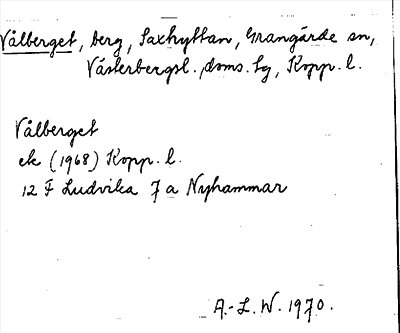 Vålberget, berg, Saxhyttan, Grangärde sn,
Västerbergsl. doms. sg, Kopp. l.
Vålberget
ek (1968) Kopp. l.
12 F Ludvika 7 a Nyhammar
A.-L. W. 1970.